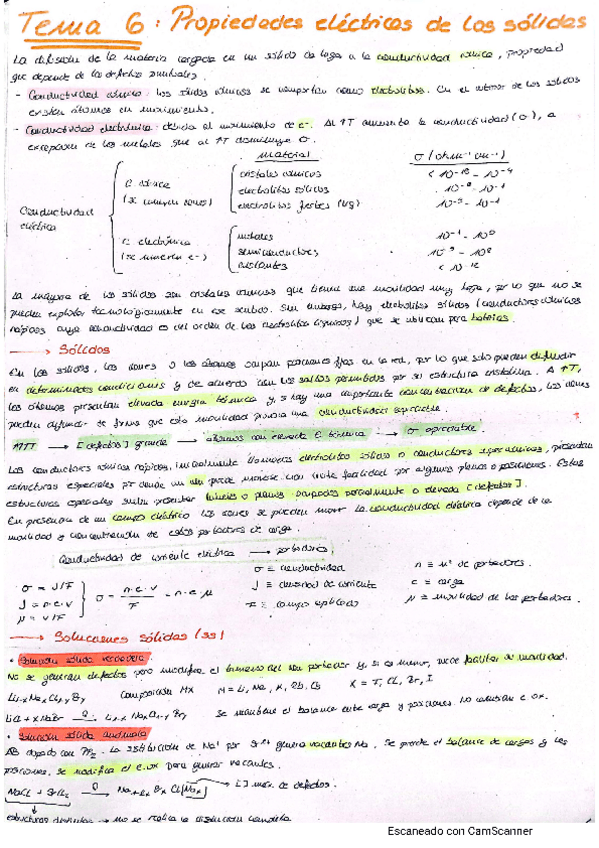 Tema 6: Propiedades eléctricas de los sólidos
La difusión de la materia cargada en un sólido da lugar a la conductividad iónica, propiedad
que depende de los defectos puntuales.
- Conductividad iónica: los sólidos iónicos se comportan como electrolitos. En el interior de los sólidos
existen átomos en movimiento.
- Conductividad electrónica: debida al movimiento de e-. Al ↑T aumenta la conductividad (σ), a
excepción de los metales que al ↑T disminuye σ.
material σ (ohm⁻¹ cm⁻¹)
Conductividad eléctrica
C. iónica
(se mueven iones)
cristales iónicos < 10⁻¹⁸ - 10⁻⁴
electrolitos sólidos 10⁻³ - 10¹
electrolitos fuertes (liq) 10⁻³ - 10¹
C. electrónica
(se mueven e-)
metales
semiconductores
aislantes < 10⁻¹²
La mayoría de los sólidos son cristales iónicos que tienen una movilidad muy baja, por lo que no se
pueden explotar tecnológicamente en ese sentido. Sin embargo, hay electrolitos sólidos (conductores iónicos
rápidos cuya conductividad es del orden de los electrolitos líquidos) que se utilizan para baterías.
→ Sólidos
En los sólidos, los iones o los átomos ocupan posiciones fijas en la red, por lo que solo pueden difundir
en determinadas condiciones y de acuerdo con los saltos permitidos por su estructura cristalina. A ↑T,
los átomos presentan elevada energía térmica y, si hay una importante concentración de defectos, los iones
pueden difundir de forma que esta movilidad provoca una conductividad apreciable.
↑↑T → [defectos] grande → átomos con elevada E térmica → σ apreciable
Los conductores iónicos rápidos, inicialmente llamados electrolitos sólidos o conductores superiónicos, presentan
estructuras especiales por donde un ion puede moverse con facilidad por algunos planos o posiciones. Estas
estructuras especiales suelen presentar túneles o planos ocupados parcialmente o elevada [defectos].
En presencia de un campo eléctrico los iones se pueden mover. La conductividad eléctrica depende de la
movilidad y concentración de estos portadores de carga.
Conductividad de corriente eléctrica → portadores
σ = J/F
J = n·e·v
μ = v/F
σ = n·e·v / F = n·e·μ
σ ≡ conductividad
J ≡ densidad de corriente
F ≡ campo aplicado
n ≡ nº de portadores.
e ≡ carga
μ ≡ movilidad de los portadores.
→ Soluciones sólidas (ss)
• Solución sólida verdadera.
No se generan defectos pero modifica el número del ion portador y, si es menor, puede facilitar su movilidad.
Composición MX M = Li, Na, K, Rb, Cs
Se mantiene el balance entre carga y posiciones. No cambian e. ox.
• Solución sólida anómala
La sustitución de Na⁺ por Sr²⁺ genera vacantes Na. Se pierde el balance de cargas y las
posiciones. Se modifica el e.ox para generar vacantes.
NaCl + SrCl₂
[ ] máx. de defectos.
estructuras distintas → no se realiza la disolución completa.
Escaneado con CamScanner